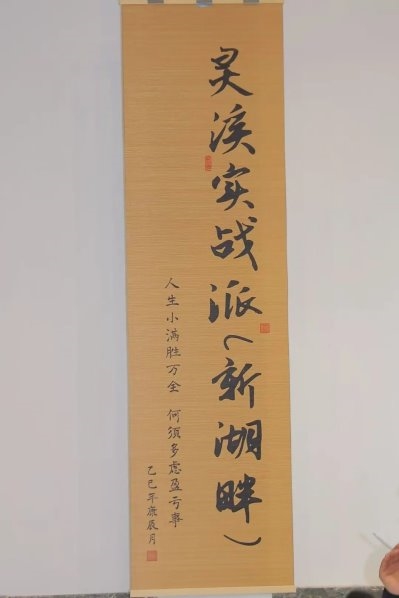 灵溪实战派(新湖畔)
人生小满胜万全 何须多虑盈亏事
乙巳年庚辰月